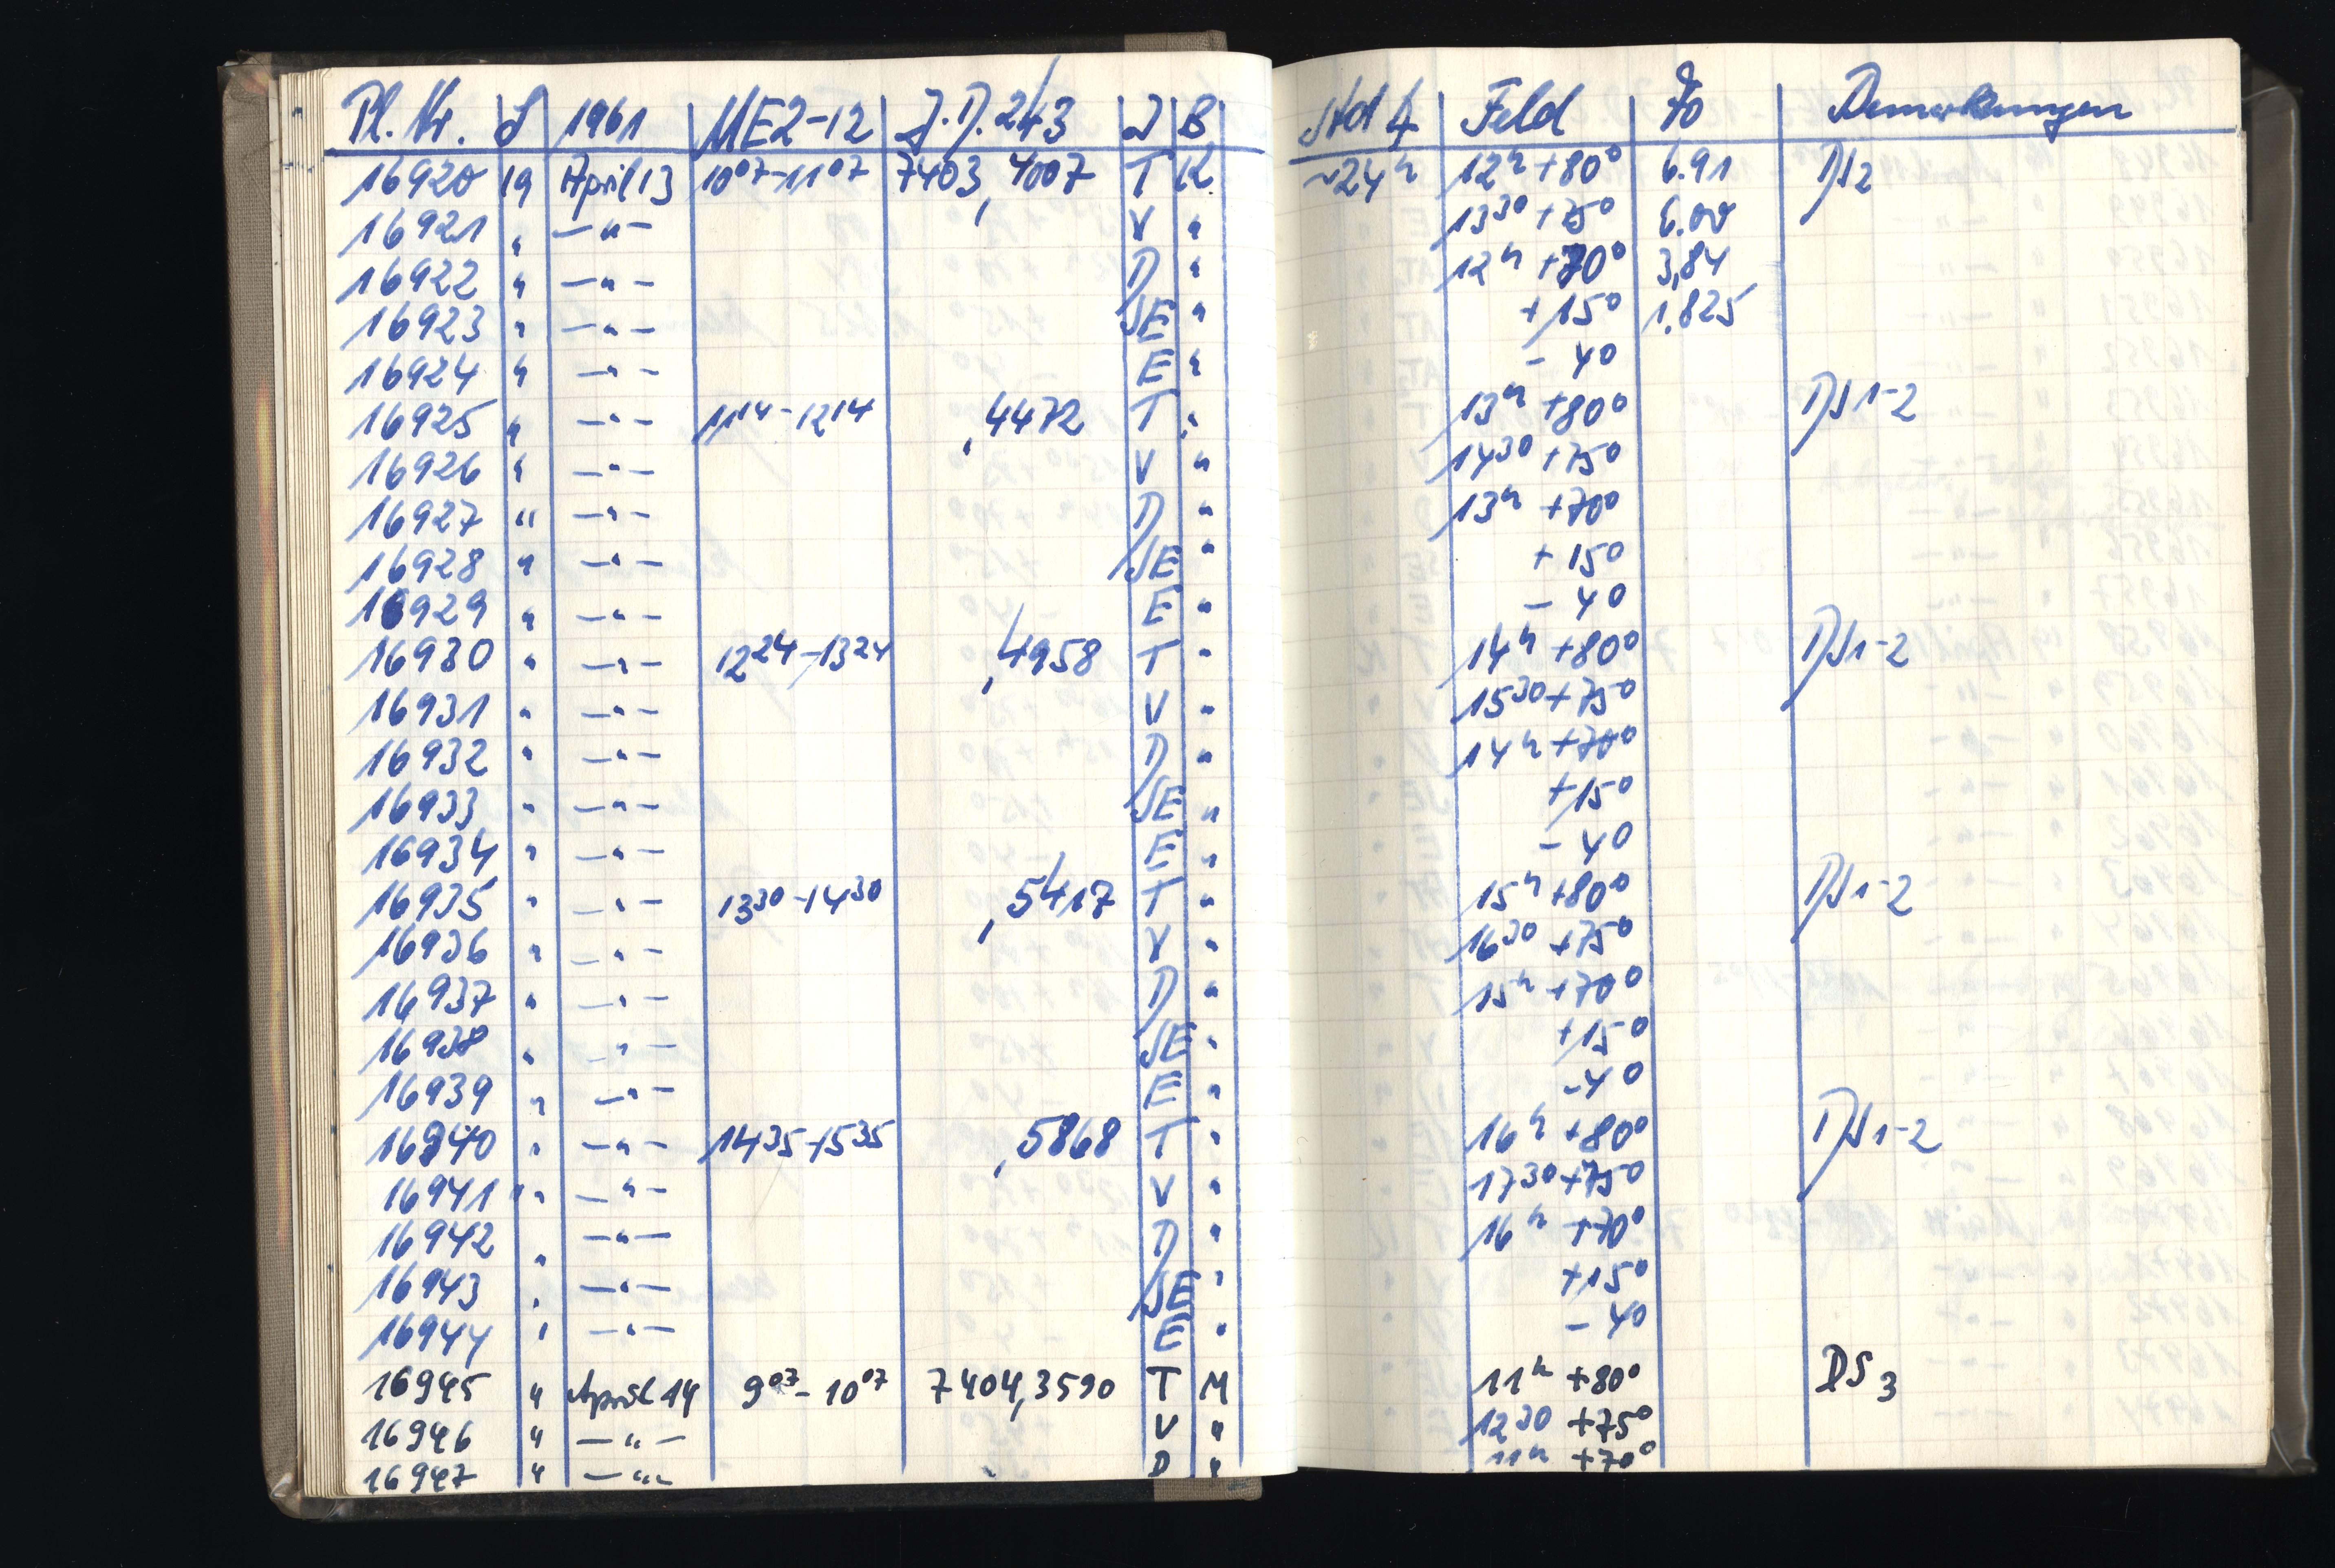 Pl. Nr. S 1961 MEZ-12 J.D. 243 I B Std ∡ Feld Bemerkungen
16920 19 April 13 10 07 - 11 07 7403,4007 T K ~24h 12h +80° 6.91 DS2
16921 " — " — V " 13 30 +75° 6.00
16922 " — " — D " 12h +70° 3,84
16923 " — " — SE " +15° 1.825
16924 " — " — E " - 4°
16925 " — " — 11 14 - 12 14 ,4472 T " 13h +80° DS1-2
16926 " — " — V " 14 30 +75°
16927 " — " — D " 13h +70°
16928 " — " — SE " +15°
16929 " — " — E " - 4°
16930 " — " — 12 24 - 13 24 ,4958 T " 14h +80° DS1-2
16931 " — " — V " 15 30 +75°
16932 " — " — D " 14h +70°
16933 " — " — SE " +15°
16934 " — " — E " - 4°
16935 " — " — 13 30 - 14 30 ,5417 T " 15h +80° DS1-2
16936 " — " — V " 16 30 +75°
16937 " — " — D " 15h +70°
16938 " — " — SE " +15°
16939 " — " — E " - 4°
16940 " — " — 14 35 - 15 35 ,5868 T " 16h +80° DS1-2
16941 " — " — V " 17 30 +75°
16942 " — " — D " 16h +70°
16943 " — " — SE " +15°
16944 " — " — E " - 4°
16945 " April 14 9 07 - 10 07 7404,3590 T M 11h +80° DS3
16946 " — " — V " 12 30 +75°
16947 " — " — D " 11h +70°